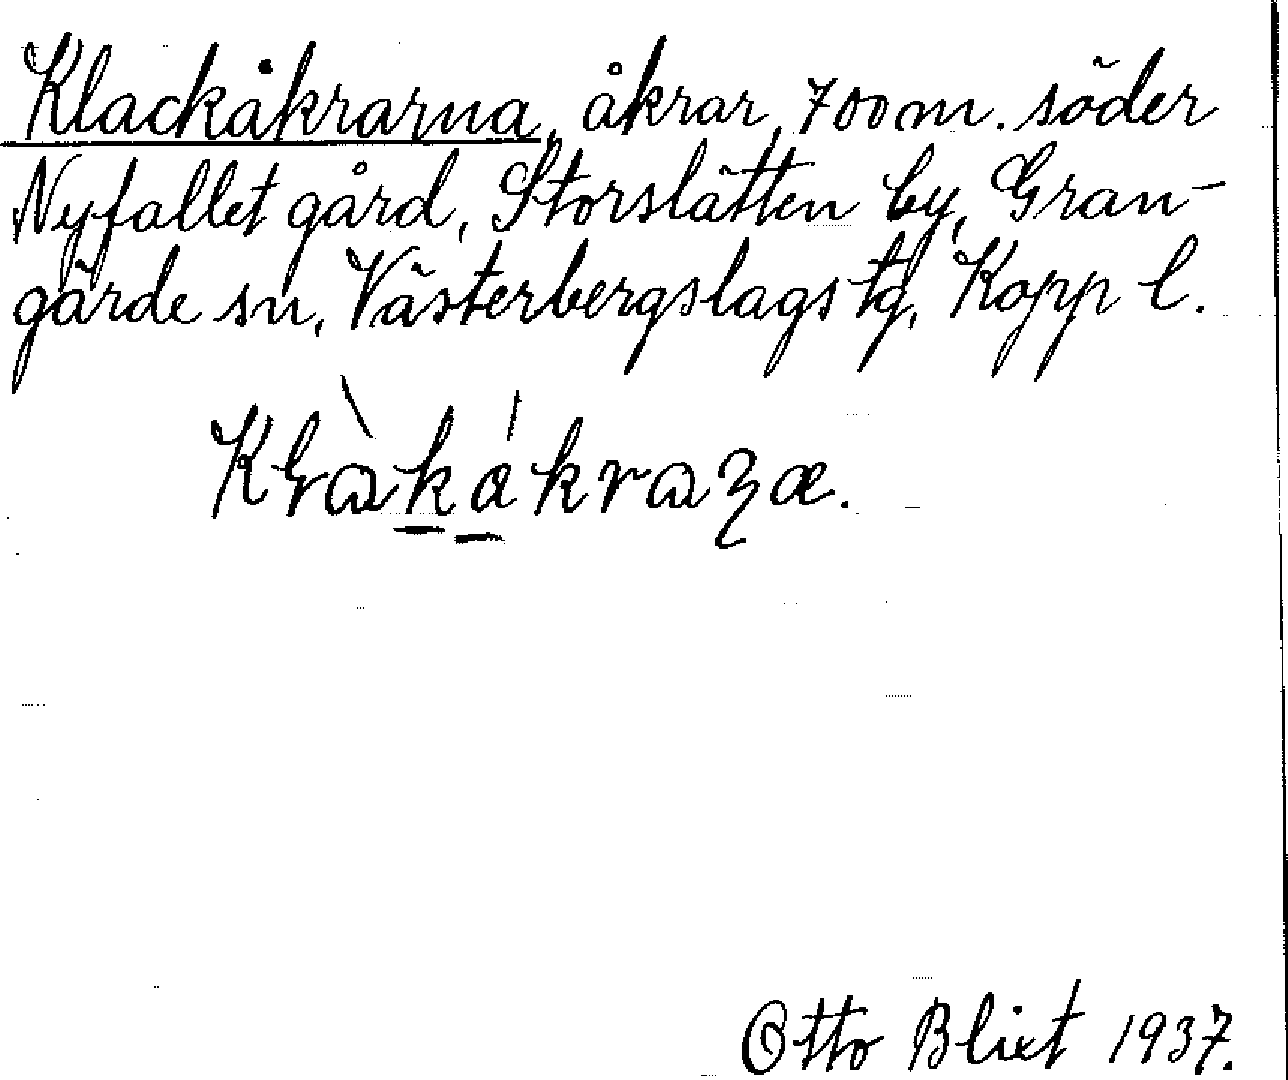 Klackåkrarna, åkrar, 700 m. söder
Nyfallet gård, Storslätten by, Gran-
gärde sn, Västerbergslags tg, Kopp l.
Otto Blixt 1937.